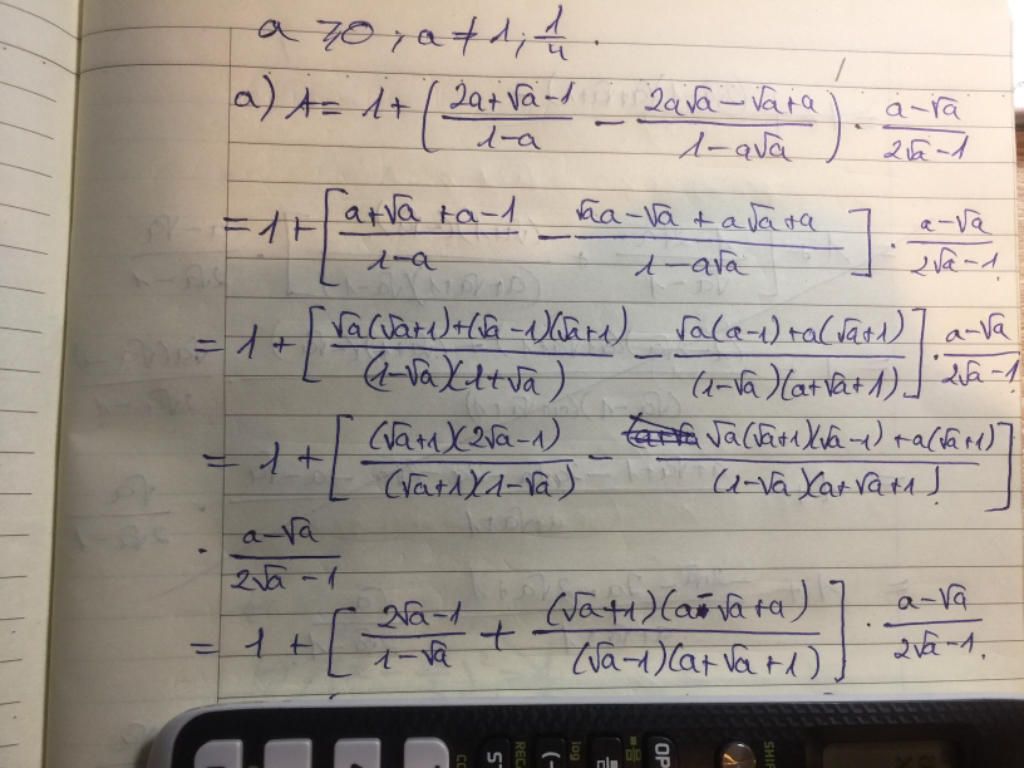 a ⩾ 0 ; a ≠ 1 ; 1/4 .
a) A = 1 + ( (2a+√a-1)/(1-a) - (2a√a-√a+a)/(1-a√a) ) · (a-√a)/(2√a-1)
= 1 + [ (a+√a+a-1)/(1-a) - (√aa-√a+a√a+a)/(1-a√a) ] · (a-√a)/(2√a-1)
= 1 + [ (√a(√a+1)+(√a-1)(√a+1))/((1-√a)(1+√a)) - (√a(a-1)+a(√a+1))/((1-√a)(a+√a+1)) ] · (a-√a)/(2√a-1)
= 1 + [ ((√a+1)(2√a-1))/((√a+1)(1-√a)) - (√a(√a+1)(√a-1)+a(√a+1))/((1-√a)(a+√a+1)) ]
· (a-√a)/(2√a-1)
= 1 + [ (2√a-1)/(1-√a) + ((√a+1)(a-√a+a))/((√a-1)(a+√a+1)) ] · (a-√a)/(2√a-1).